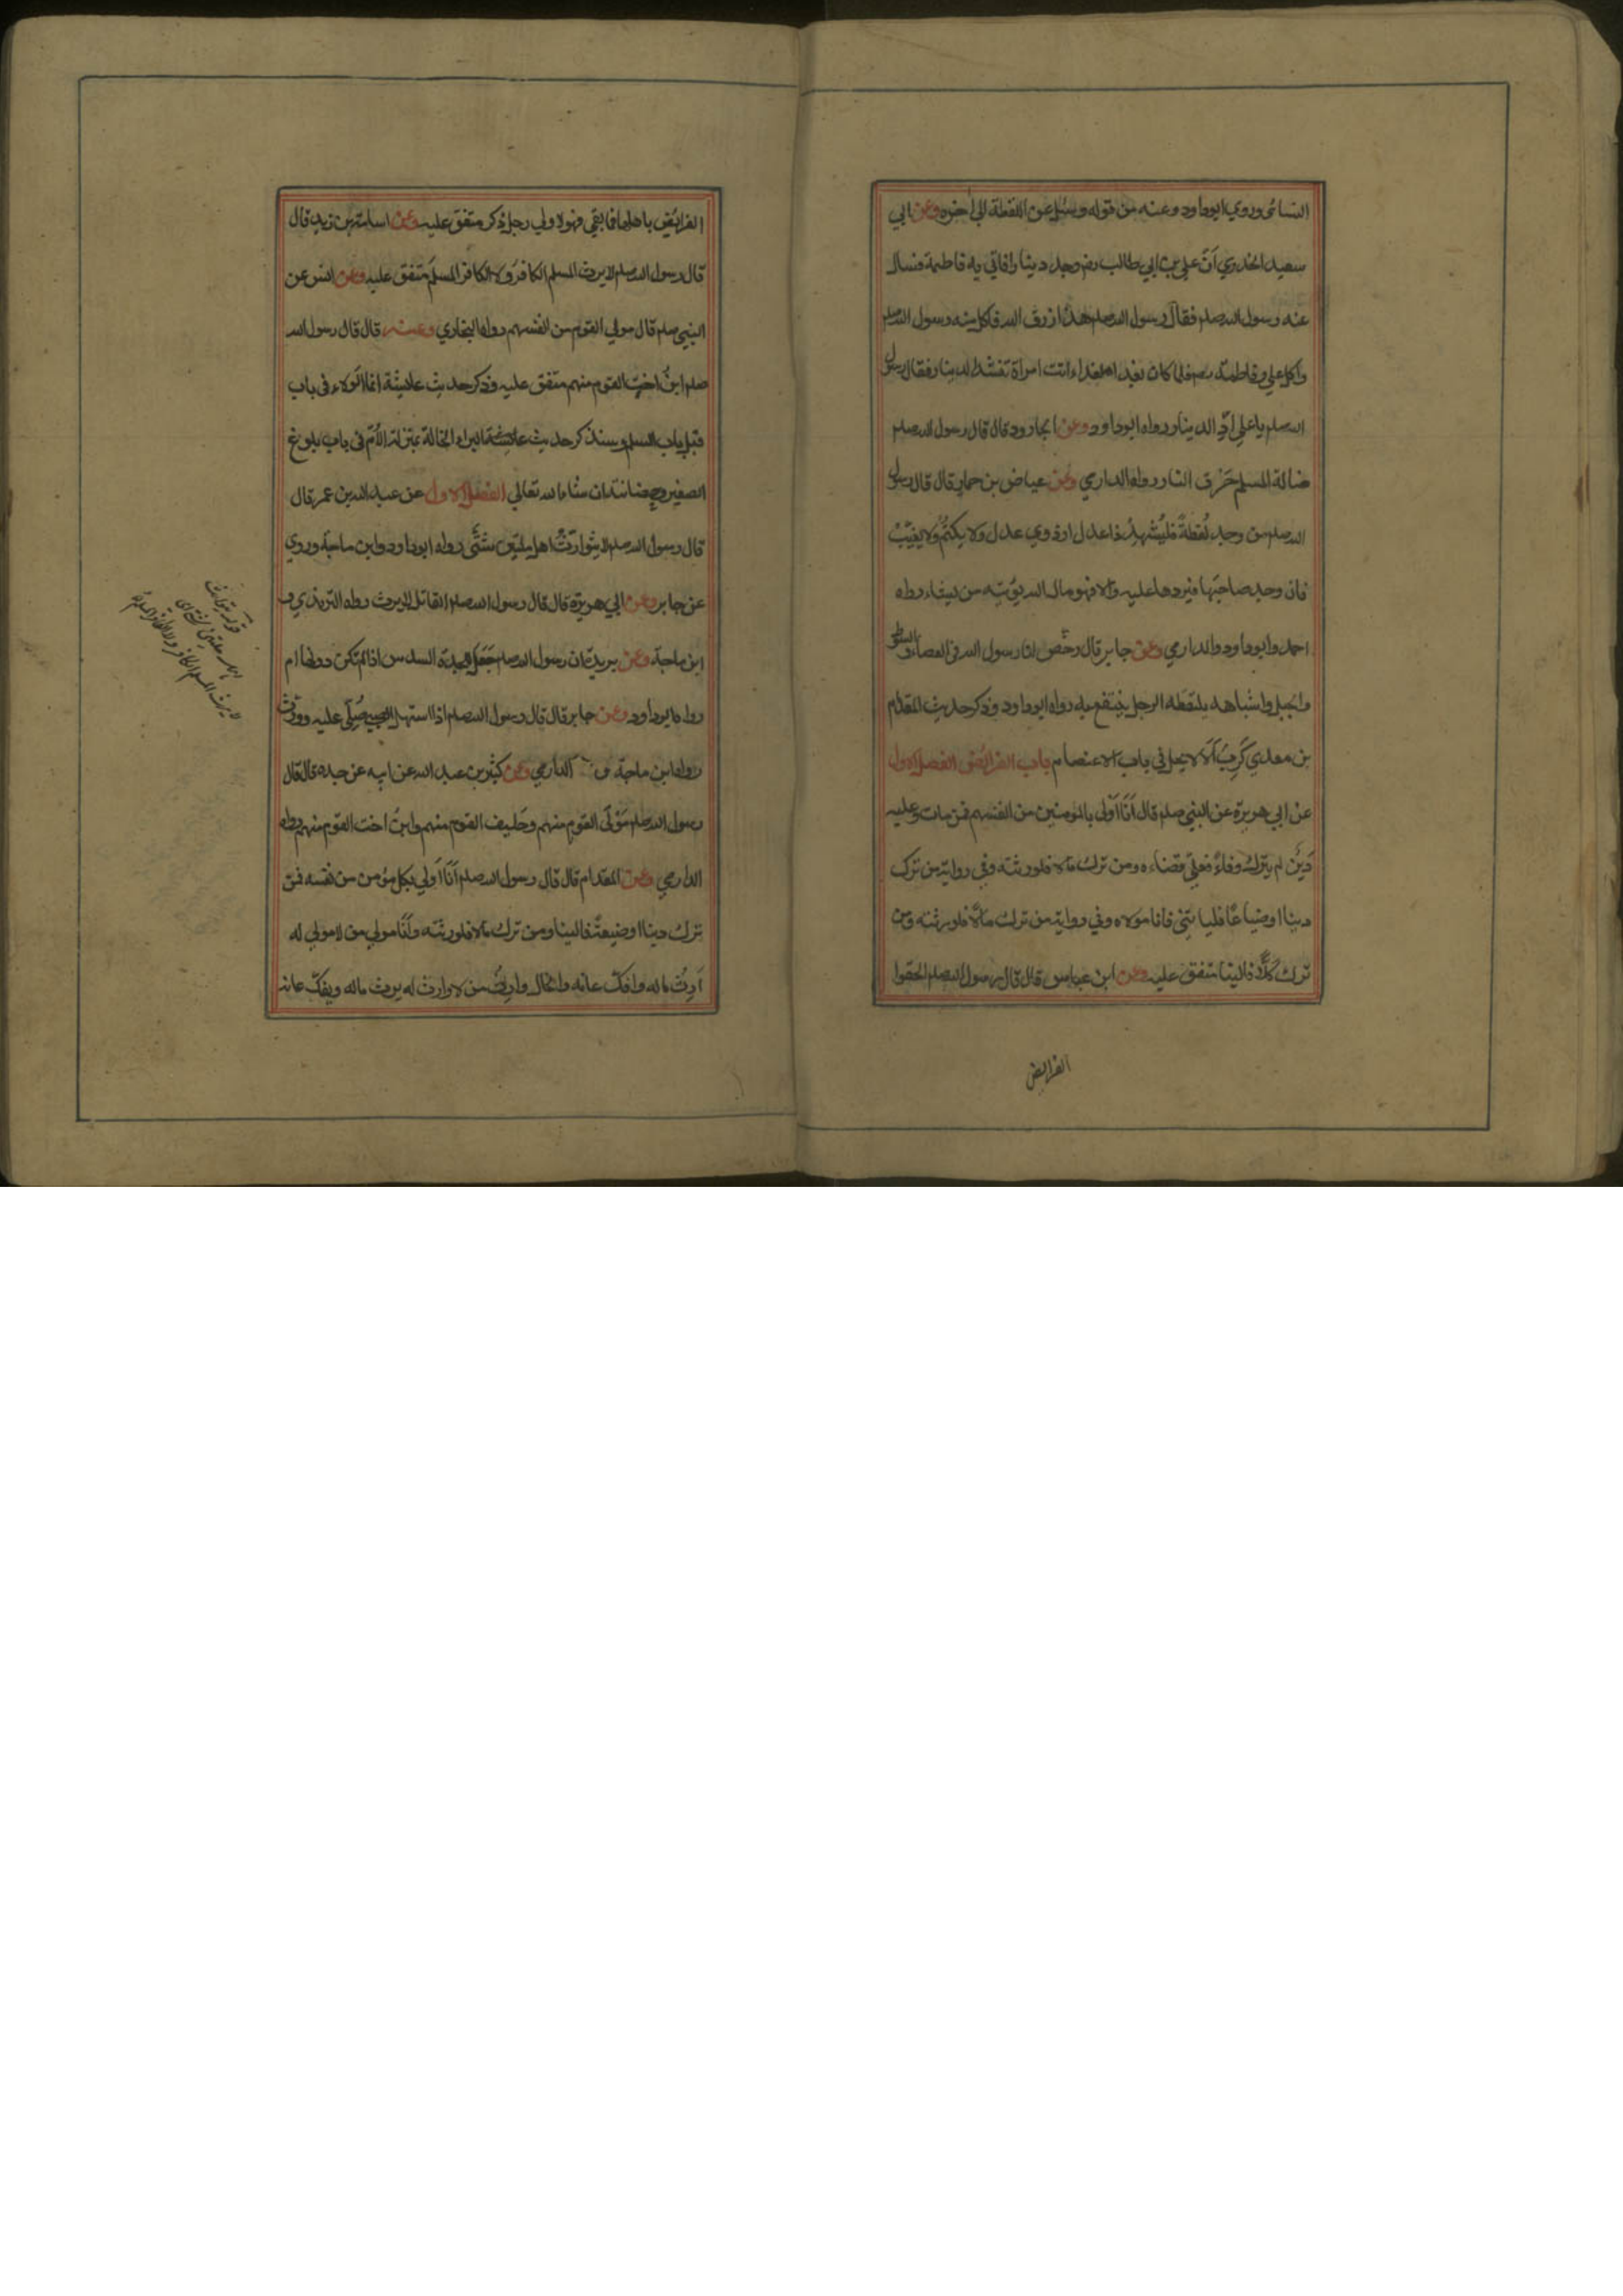 النسائي وروي ابوداود وعنه من قوله وسئل عن اللقطة الى اخره وعن ابي
سعيد الخدري انّ علي بن ابي طالب رض وجد دينارا فاتي به فاطمة فسال
عنه رسول الله صلم فقال رسول الله صلم هذا رزق الله فاكل منه رسول الله صلم
واكل علي وفاطمة رضهم فلما كان بعد ذلك اتت امراة تنشد الدينار فقال رسول
الله صلم يا علي ادّ الدينار رواه ابوداود وعن الجارود قال قال رسول الله صلم
ضالة المسلم حَرَق النار رواه الدارمي وعن عياض بن حمار قال قال رسول
الله صلم من وجد لُقطةً فليُشهِد ذا عدل او ذوي عدل ولا يكتُم ولا يغيّبْ
فان وجد صاحبَها فليردها عليه والا فهو مال الله يؤتيه من يشاء رواه
احمد وابوداود والدارمي وعن جابر قال رخّص لنا رسول الله في العصا والسوط
والحبل واشباهه يلتقطه الرجل ينتفع به رواه ابوداود وذكر حديث المقدام
بن معدي كَرِبَ اَلا لا يحل في باب الاعتصام باب الفرائض الفصل الاول
عن ابي هريرة عن النبي صلم قال اَنَا اَوْلى بالمومنين من انفسهم فمن مات وعليه
دَينٌ لم يترك وفاءً فعليّ قضاءه ومن ترك مالا فلورثته وفي رواية من ترك
دينا او ضياعًا فلياتني فانا مولاه وفي رواية من ترك مالًا فلورثته ومن
ترك كَلًّا فالينا متفق عليه وعن ابن عباس قال قال رسول الله صلم الحقوا
الفرايض
الفرائض باهلها فما بقي فهو لاولي رجل ذكر متفق عليه وعن اسامة بن زيد قال
قال رسول الله صلم لا يرث المسلم الكافرَ ولا الكافر المسلمَ متفق عليه وعن انس عن
النبي صلم قال مولي القوم من انفسهم رواه البخاري وعنه قال قال رسول الله
صلم ابنُ اخت القوم منهم متفق عليه وذكر حديث عايشة انما الولاء في باب
قبل باب السلم وسنذكر حديث البراء الخالة بمنزلة الأُمّ في باب بلوغ
الصغير وحضانته ان شاء الله تعالي الفصل الاول عن عبد الله بن عمر قال
قال رسول الله صلم لا يتوارثُ اهل ملتين شتّى رواه ابوداود وابن ماجة وروي
عن جابر وعن ابي هريرة قال قال رسول الله صلم القاتل لا يرث رواه الترمذي و
ابن ماجة وعن بريدة ان رسول الله صلم جَعَل للجدة السدس اذا لم تكن دونها ام
رواه ابوداود وعن جابر قال قال رسول الله صلم اذا استهل الصبي صُلّي عليه وورّث
رواه ابن ماجة و الدارمي وعن كثير بن عبد الله عن ابيه عن جده قال قال
رسول الله صلم مَوْلَى القوم منهم وحَليف القوم منهم وابنُ اخت القوم منهم رواه
الدارمي وعن المقدام قال قال رسول الله صلم اَنَا اَولي بكل مؤمن من نفسه فمن
ترك دينا او ضيعةً فالينا ومن ترك مالا فلورثته واَنَا مولي من لا مولي له
اَرِثُ ماله وافكّ عانَه والخال وارثُ من لا وارث له يرث ماله ويفكّ عانه